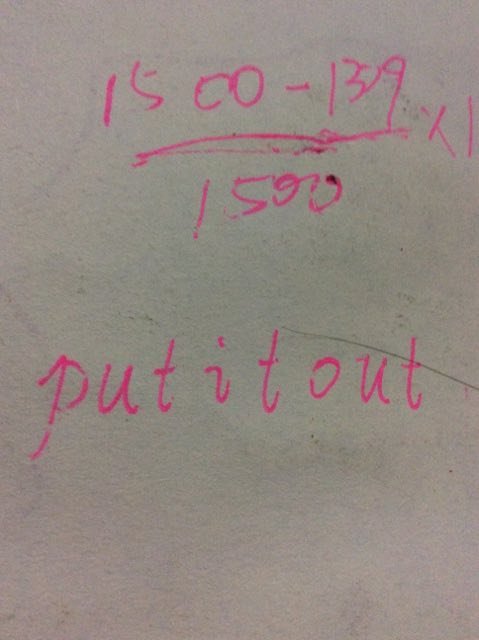 1500-139
×1
1500
put it out